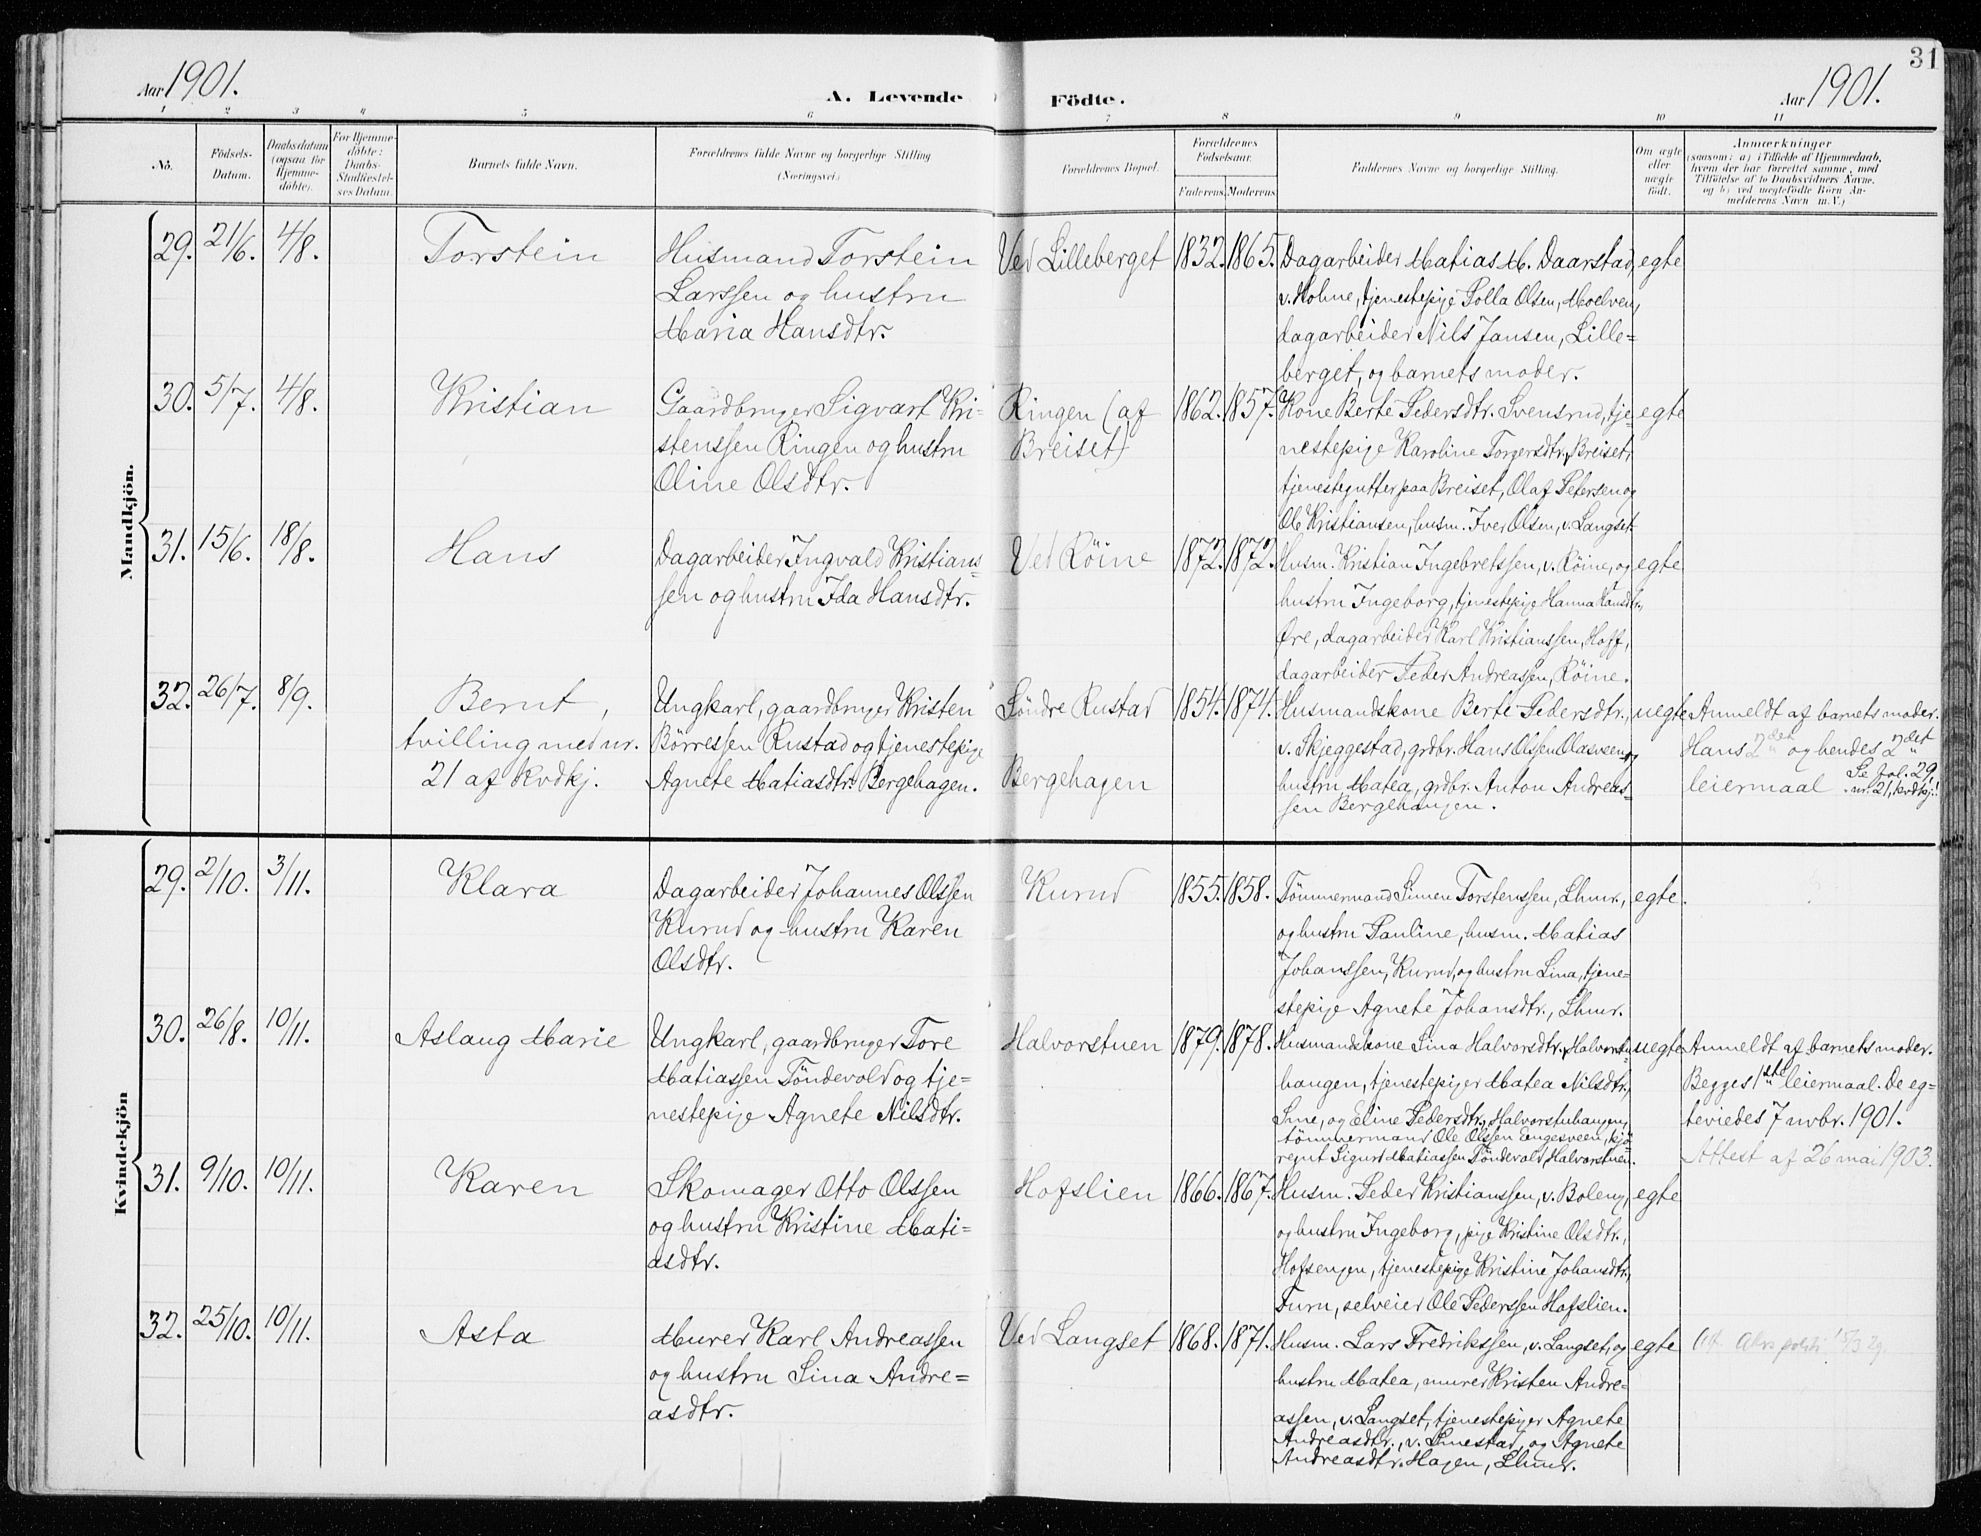 31
Aar 1901.
A. Levende Födte.
Aar 1901.
1 2 3 4 5 6 7 8 9 10 11
No.
Födsels-Datum.
Daabsdatum (ogsaa for Hjemme-döbte).
For Hjemme-döbte: Daabs-Stadfæstel-ses Datum.
Barnets fulde Navn.
Forældrenes fulde Navne og borgerlige Stilling (Næringsvei.)
Forældrenes Bopæl.
Forældrenes Födselsaar.
Faderens. Moderens.
Faddernes Navne og borgerlige Stilling.
Om ægte eller uægte født.
Anmærkninger
(saasom: a) i Tilfælde af Hjemmedaab, hvem der har forrettet samme, med Tilföielse af to Daabsvidners Navne, og b) ved uægtefödte Börn An-melderens Navn m.V.)
Mandkjön.
29. 21/6. 4/8.
Torstein
Husmand Torstein
Larssen og hustru
Maria Hansdtr.
Ved Lilleberget
1832. 1865.
Dagarbeider Matias M. Daarstad,
v. Holme, tjenestepige Solla Olsen, Moelven,
dagarbeider Nils Jansen, Lille=
berget, og barnets moder.
egte
30. 5/7. 4/8.
Kristian
Gaardbruger Sigvart Kri-
stenssen Ringen og hustru
Oline Olsdtr.
Ringen (af
Breiset)
1862. 1857.
Kone Berte Pedersdtr. Svensrud, tje-
nestepige Karoline Torgersdtr., Breiset,
tjenestegutter paa Breiset, Olaf Petersen og
Ole Kristiansen, husm. Iver Olsen, v. Langset.
egte
31. 15/6. 18/8.
Hans
Dagarbeider Ingvald Kristians=
sen og hustru Ida Hansdtr.
Ved Röine
1872. 1872.
Husm. Kristian Ingebretssen, v. Röine, og
hustru Ingeborg, tjenestepige Hanna Hansdtr.,
Øre, dagarbeider Karl Kristianssen, Hoff,
dagarbeider Peder Andreassen, Röine.
egte
32. 26/7. 8/9.
Bernt,
tvilling med nr.
21 af Kvdkj.
Ungkarl, gaardbruger Kristen
Börressen Rustad og tjenestepige
Agnete Matiasdtr. Bergehagen.
Söndre Rustad
Bergehagen
1854. 1874.
Husmandskone Berte Pedersdtr.,
v. Skjeggestad, grdbr. Hans Olssen Olasveen og
hustru Matea, grdbr. Anton Andreas-
sen Bergehaugen.
uegte
Anmeldt af barnets moder.
Hans 2det og hendes 2det
leiermaal Se fol. 29,
nr. 21, kvdkj.!
Kvindekjön
29. 2/10. 3/11.
Klara
Dagarbeider Johannes Olssen
Kurud og hustru Karen
Olsdtr.
Kurud
1855. 1858.
Tömmermand Simen Torstenssen, Lhmr.,
og hustru Pauline, husm. Matias
Johanssen, Kurud, og hustru Lina, tjene-
stepige Agnete Johansdtr., Lhmr.
egte.
30. 26/8. 10/11.
Aslaug Marie
Ungkarl, gaardbruger Tore
Matiassen Töndevold og tje=
nestepige Agnete Nilsdtr.
Halvorstuen
1879. 1878.
Husmandskone Lina Halvorsdtr., Halvorstu-
haugen, tjenestepiger Matea Nilsdtr.,
Sme, og Eline Pedersdtr., Halvorstuhaugen,
tömmermand Ole Olssen Engesveen, kjö-
regut Sigurd Matiassen Töndevold, Halvorstuen.
uegte
Anmeldt af barnets moder.
Begges 1ste leiermaal. De eg=
teviedes 7 nvbr. 1901.
Attest af 26 mai 1903.
31. 9/10. 10/11.
Karen
Skomager Otto Olssen
og hustru Kristine Mati-
asdtr.
Hofslien
1866. 1867.
Husm. Peder Kristianssen, v. Boleng,
og hustru Ingeborg, pige Kristine Olsdtr.,
Hofsengen, tjenestepige Kristine Johansdtr.,
Furu, selveier Ole Pederssen Hofslien.
egte
32. 25/10. 10/11.
Asta
Murer Karl Andreassen
og hustru Lina Andre=
asdtr.
Ved Langset
1868. 1871.
Husm. Lars Fredrikssen, v. Langset, og
hustru Matea, murer Kristen Andre-
assen, v. Langset, tjenestepiger Agnete
Andreasdtr., v. Smestad, og Agnete
Andreasdtr. Hagen, Lhmr.
egte